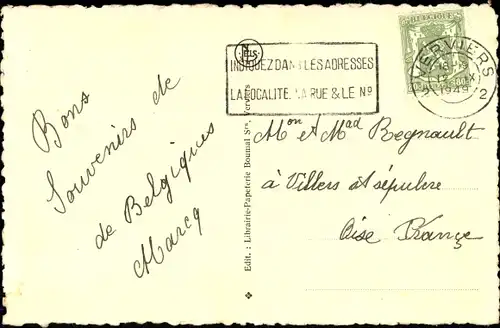 Bons
Souvenirs de
de Belgiques
Marcq
NELS
INDIQUEZ DANS LES ADRESSES
LA LOCALITE, LA RUE & LE Nº
BELGIQUE
VERVIERS
1949
2
Edit. : Librairie-Papeterie Boumal Srs, Verviers
Mon et Mad Regnault
à Villers St sépulcre
Oise France